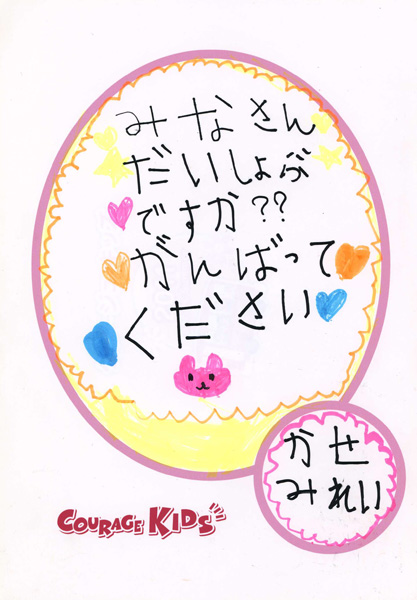 みなさん
だいしょぶ
ですか??
がんばって
ください
かせ
みれい
COURAGE KIDS